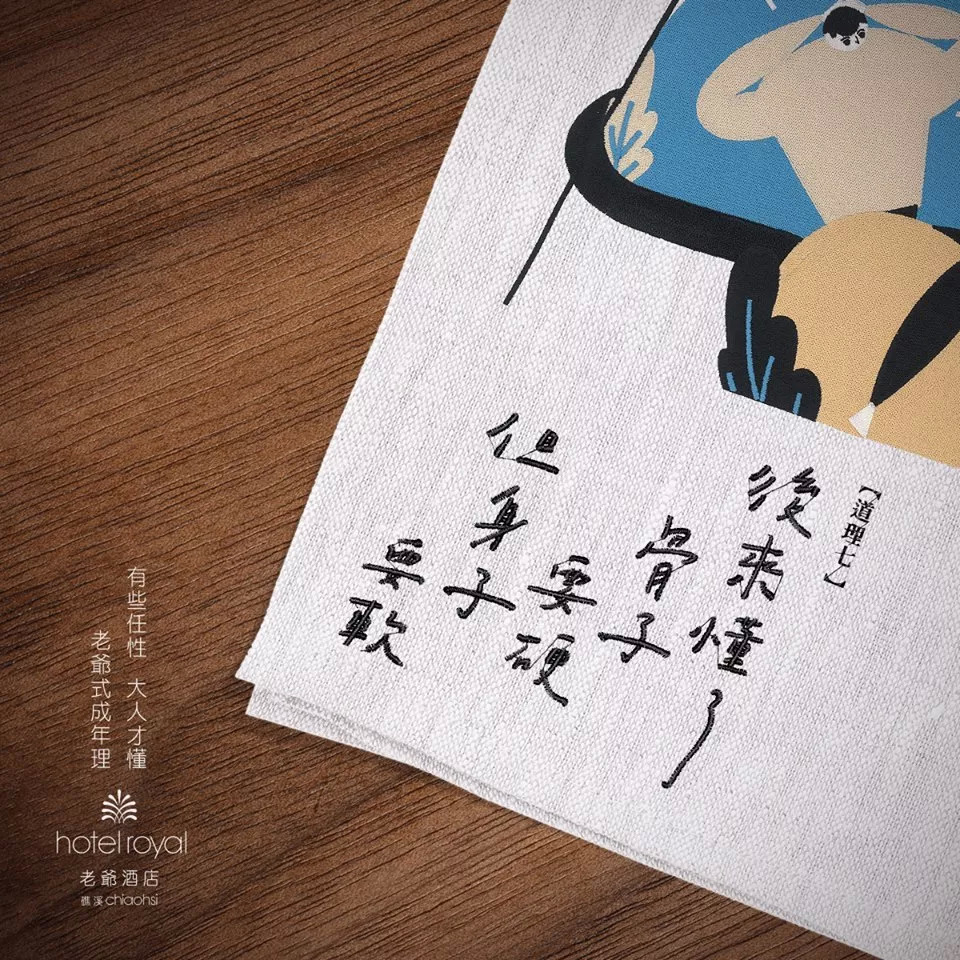 【道理七】
後來懂了
骨子
要硬
但身子
要軟
有些任性 大人才懂
老爺式成年理
hotel royal
老爺酒店
礁溪 chiaohsi